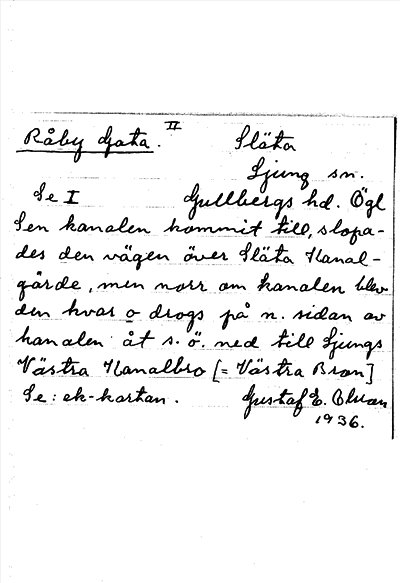 Råby Gata. II Släta
Ljung sn.
Se I Gullbergs hd. Ögl
Sen kanalen kommit till, slopa-
des den vägen över Släta Kanal-
gärde, men norr om kanalen blev
den kvar o drogs på n. sidan av
kanalen åt s. ö. ned till Ljungs
Västra Kanalbro [= Västra Bron]
Se: ek-kartan. Gustaf E.
1936.